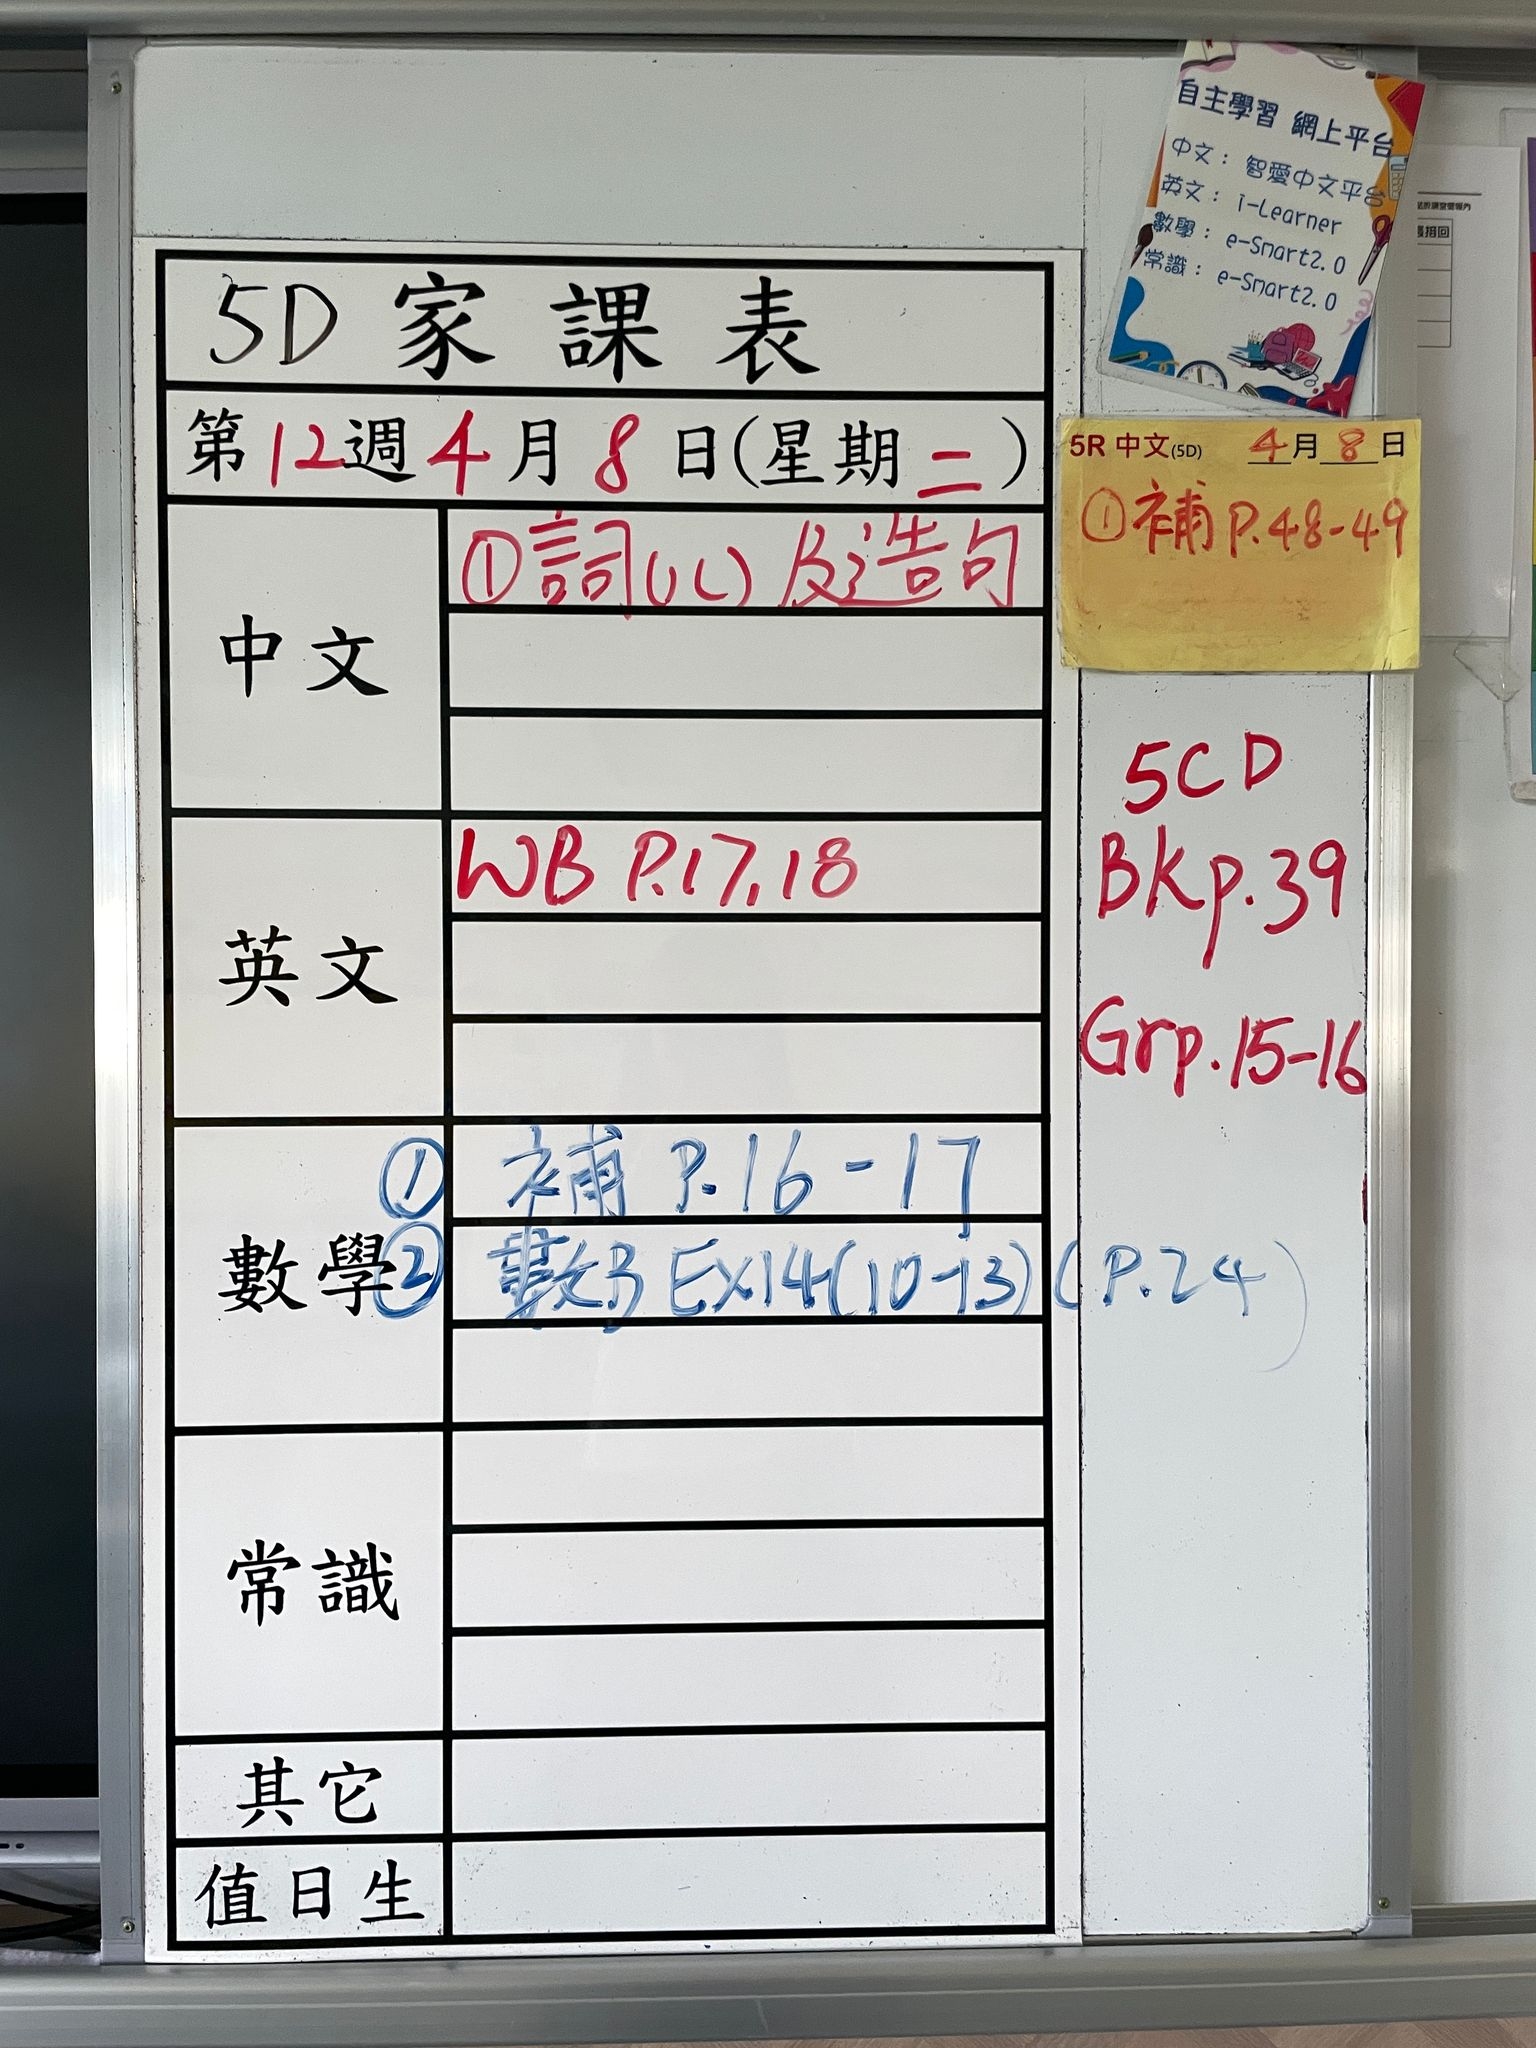 自主學習 網上平台
中文：智愛中文平台
英文：i-Learner
數學：e-Smart2.0
常識：e-Smart2.0
5D 家課表
第12週4月8日(星期二)
5R 中文(5D) 4月8日
①補P.48-49
中文
①詞(L) 及造句
5CD
BKp.39
Grp.15-16
英文
WB P.17,18
數學
① 補 P.16-17
② 數B EX14(10-13)(P.24)
常識
其它
值日生